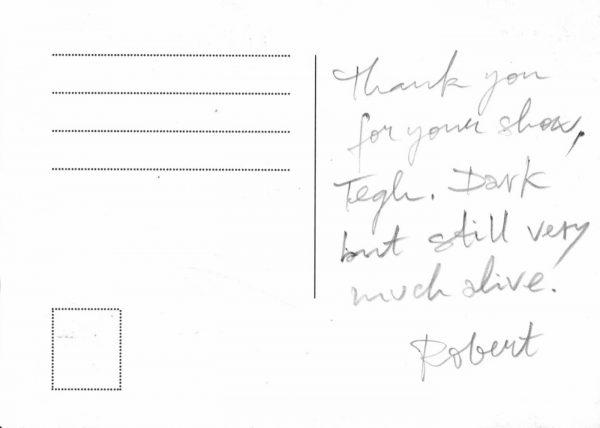 Thank you
for your show,
Tegh. Dark
but still very
much alive.
Robert